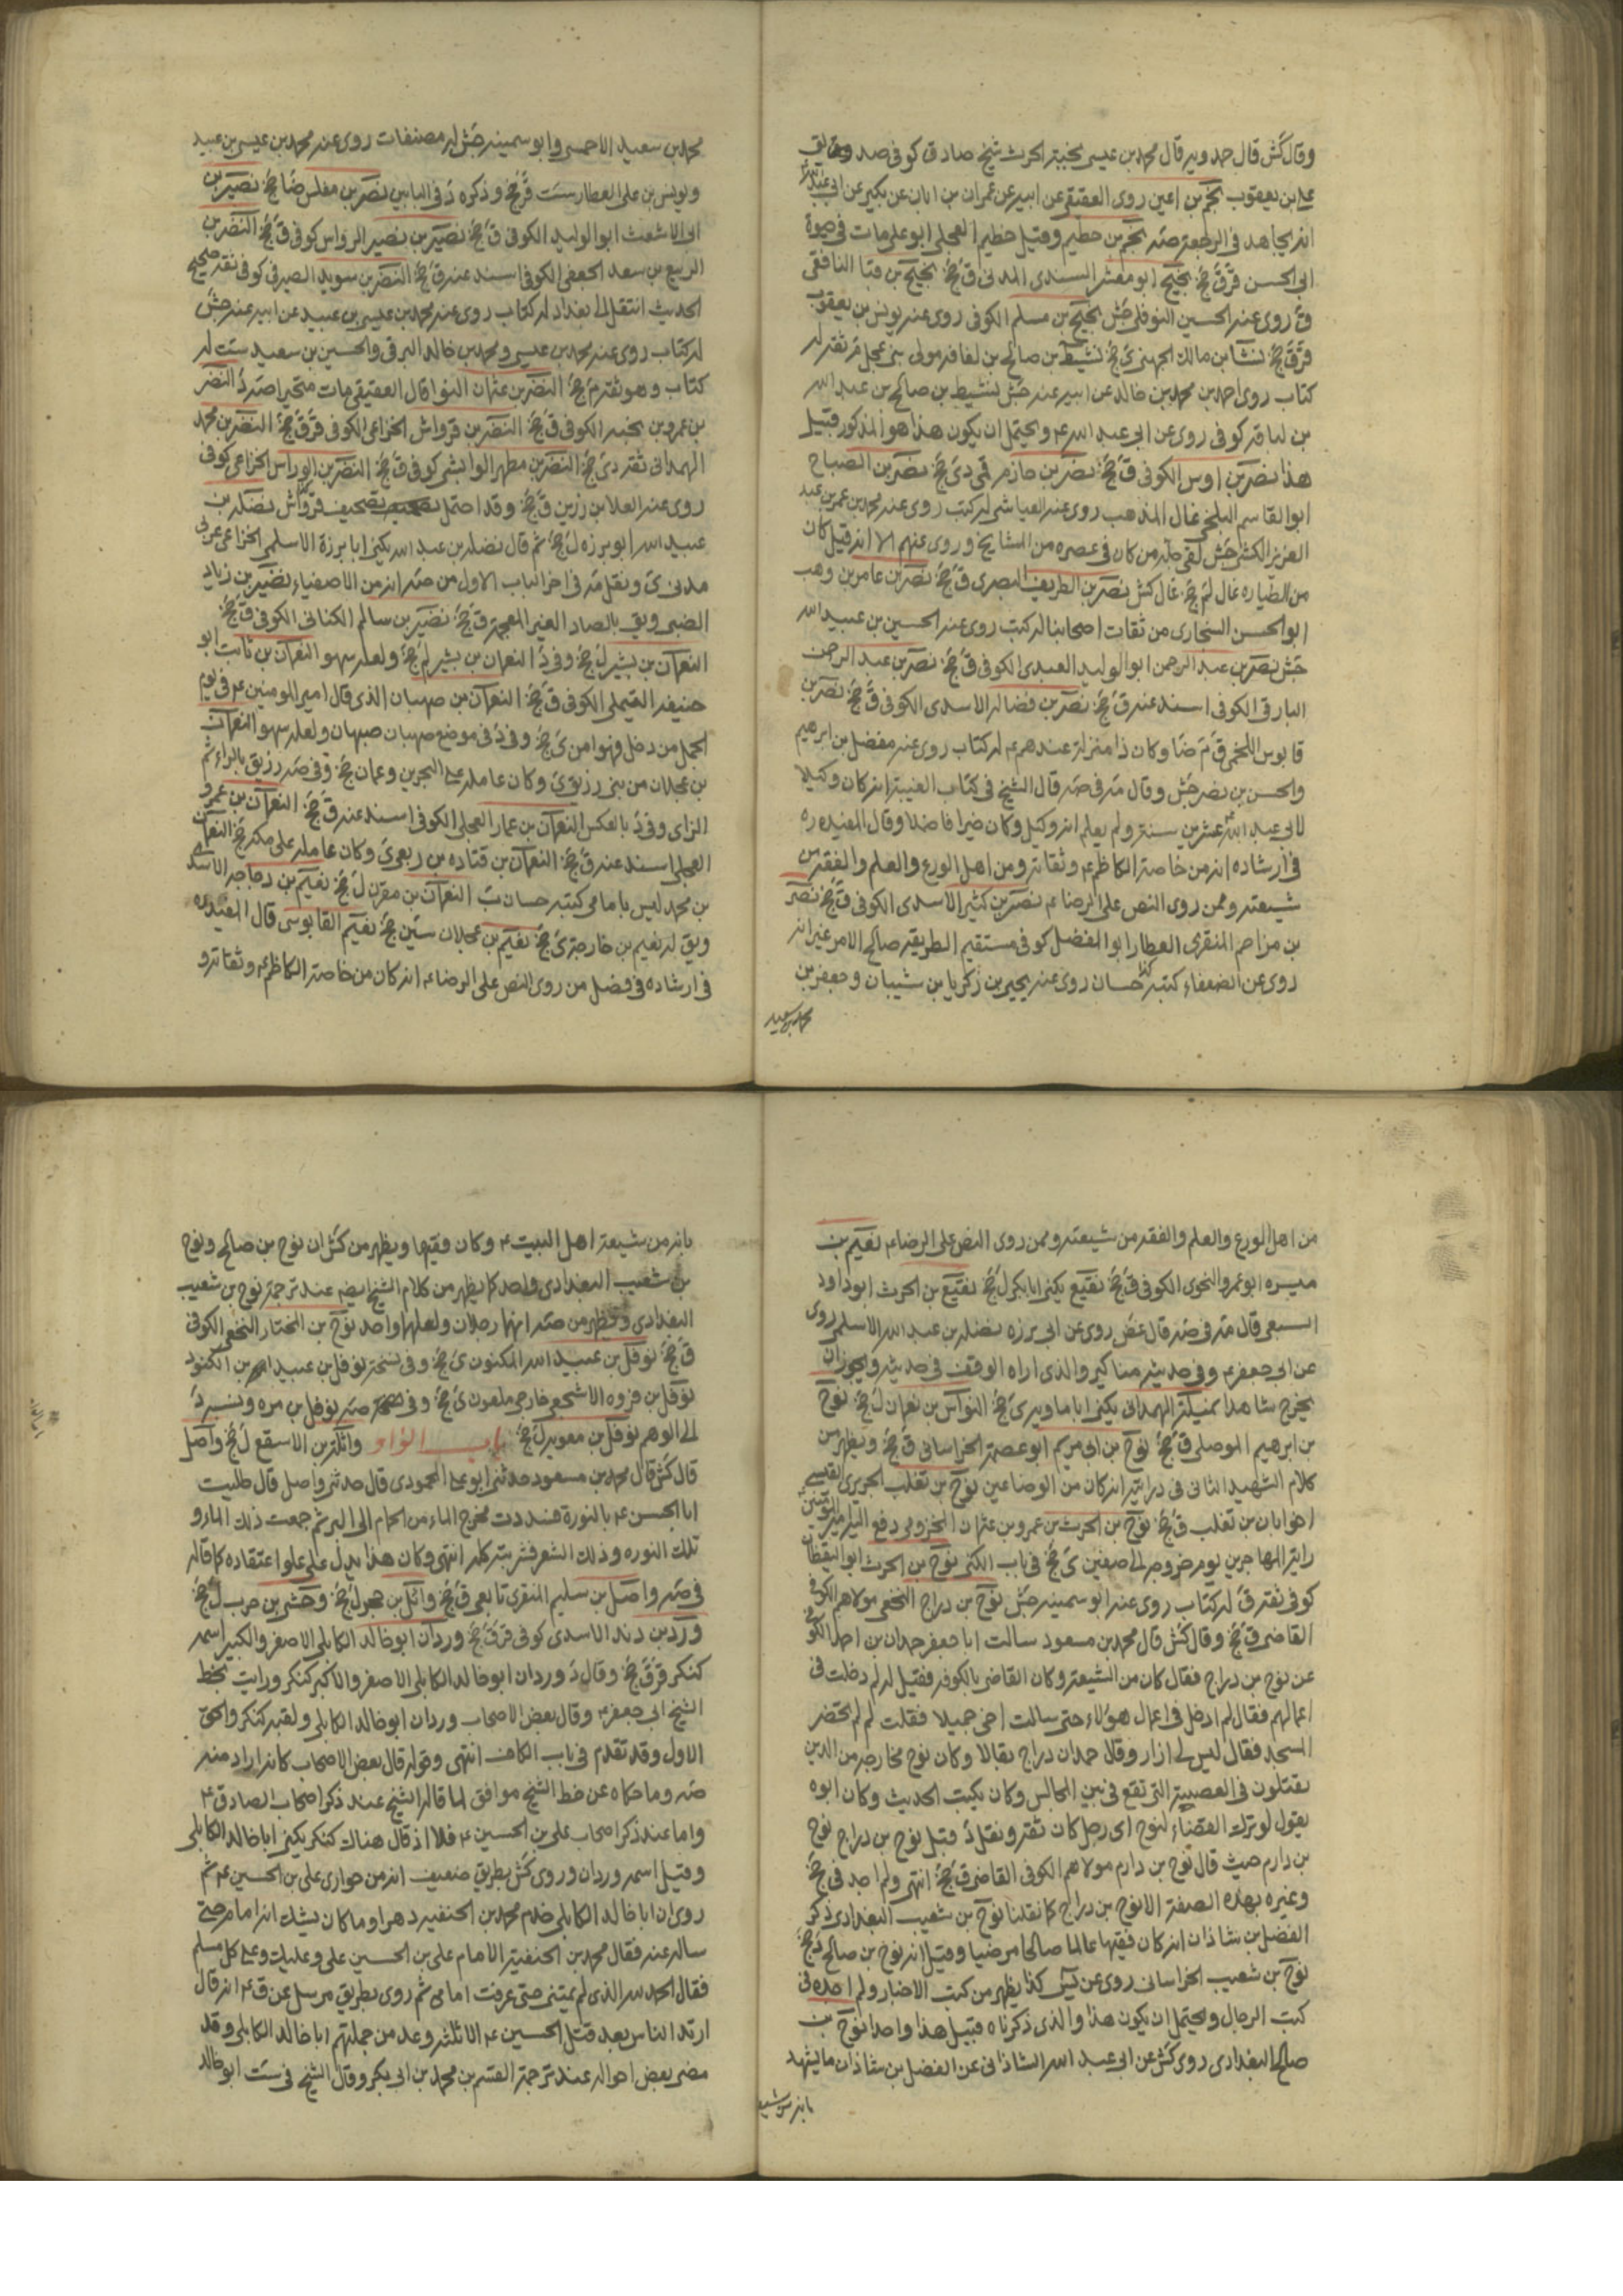 وقال كش قال حمدويه قال محمد بن عيسى نجية بن الحرث شيخ صادق كوفى صديق
على بن يعقوب نجم بن اعين روى العقيقى عن ابيه عن عمران بن ابان عن بكير عن ابى عبد الله
انه يجاهد فى الرجعة صه نجم بن حطيم وقيل خطيم العجلى ابو على مات فى حيوة
ابى الحسن قر ق جخ نجيح ابو معشر السندى المدنى ق جخ نجيح بن قبا النافقى
ق روى عنه الحسين النوفلى جش نجيح بن مسلم الكوفى روى عنه يونس بن يعقوب
قر ق جخ نشا بن مالك الجهنى ى جخ نشيط بن صالح بن لفافه مولى بنى عجل م ثقة له
كتاب روى احمد بن محمد بن خالد عن ابيه عنه جش نشيط بن صالح بن عبد الله
بن لفافه كوفى روى عن ابى عبد الله ع ويحتمل ان يكون هذا هو المذكور قبيل
هذا نصر بن اوس الكوفى ق جخ نصر بن حازم قمى دى جخ نصر بن الصباح
ابو القاسم البلخى غال المذهب روى عنه العياشى له كتب روى عنه محمد بن عمر بن عبد
العزيز الكشى جش لقى جلة من كان فى عصره من المشايخ وروى عنهم الا انه قيل كان
من الطياره غال لم جخ غال كش نصر بن الطريف البصرى ق جخ نصر بن عامر بن وهب
ابو الحسن السنجارى من ثقات اصحابنا له كتب روى عنه الحسين بن عبيد الله
جش نصر بن عبد الرحمن ابو الوليد العبدى الكوفى ق جخ نصر بن عبد الرحمن
البارقى الكوفى اسند عنه ق جخ نصر بن فضاله الاسدى الكوفى ق جخ نصر بن
قابوس اللخمى ق م ضا وكان ذا منزلة عندهم ع له كتاب روى عنه مفضل بن ابرهيم
والحسن بن نصر جش وقال مه فى صه قال الشيخ فى كتاب الغيبة انه كان وكيلا
لابى عبد الله ع عشرين سنة ولم يعلم انه وكيل وكان خيرا فاضلا وقال المفيد ره
فى ارشاده انه من خاصة الكاظم ع وثقاته ومن اهل الورع والعلم والفقه من
شيعته وممن روى النص على الرضا ع نصر بن كثير الاسدى الكوفى ق جخ نصر
بن مزاحم المنقرى العطار ابو الفضل كوفى مستقيم الطريقه صالح الامر غير انه
روى عن الضعفاء كتبه حسان روى عنه يحيى بن زكريا بن شيبان وجعفر بن
محمد بن سعيد
محمد بن سعيد الاحمسى وابو سمينه جش له مصنفات روى عنه محمد بن عيسى بن عبيد
ويونس بن على العطار ست قر جخ وذكره د فى البابين نصر بن مغلس ضا جخ نصير بن
ابى الاشعث ابو الوليد الكوفى ق جخ نصير بن نصير الرواس كوفى ق جخ النضر بن
الربيع بن سعد الجعفى الكوفى اسند عنه ق جخ النضر بن سويد الصيرفى كوفى ثقة صحيح
الحديث انتقل الى بغداد له كتاب روى عنه محمد بن عيسى بن عبيد عن ابيه عنه جش
له كتاب روى عنه محمد بن عيسى ومحمد بن خالد البرقى والحسين بن سعيد ست له
كتاب وهو ثقة م جخ النضر بن عثمان النوا قال العقيقى مات متحيرا صه د النضر
بن عمرو بن الكوفى ق جخ النضر بن قرواش الخزاعى الكوفى قر ق جخ النضر بن محمد
الهمدانى ثقة دى جخ النضر بن مطهر الوابشى كوفى ق جخ النضر بن الوراس الخزاعى كوفى
روى عنه العلا بن رزين ق جخ وقد احتمل تصحيف قرواش نضله بن
عبيد الله ابو برزه ل جخ ثم قال نضله بن عبد الله يكنى ابا برزة الاسلمى الخزاعى عربى
مدنى ى ونقل مه فى اخر الباب الاول من صه انه من الاصفياء نضير بن زياد
الضبى ويق بالصاد الغير المعجمة ق جخ نضير بن سالم الكنانى الكوفى ق جخ
النعمان بن بشير ل جخ وفى د النعمان بن بشير لم جخ ولعله سهو النعمان بن ثابت ابو
حنيفه التيملى الكوفى ق جخ النعمان بن صهبان الذى قال امير المومنين ع فى يوم
الجمل من دخل فهو امن ى جخ وفى د فى موضع صهبان صبهان ولعله سهو النعمان
بن عجلان من بنى رزيق ى وكان عامله على البحرين وعمان جخ وفى صه رزيق بالراء ثم
الزاى وفى د بالعكس النعمان بن عمار العجلى الكوفى اسند عنه ق جخ النعمان بن عمرو
العجلى اسند عنه ق جخ النعمان بن قتاده بن ربعى ى وكان عامله على مكة جخ النعمان
بن محمد ليس بامامى كتبه حسان ب النعمان بن مقرن ل جخ نعيم بن دجاجه الاسدى
ويق له نعيم بن خارجة ى جخ نعيم بن عجلان سين جخ نعيم القابوسى قال المفيد ره
فى ارشاده فى فصل من روى النص على الرضا ع انه كان من خاصة الكاظم ع وثقاته و
من اهل الورع والعلم والفقه من شيعته وممن روى النص على الرضا ع نعيم بن
ميسره ابو عمرو النحوى الكوفى ق جخ نفيع يكنى ابا بكر ل جخ نفيع بن الحرث ابو داود
السبيعى قال مه فى صه قال غض روى عن ابى برزه نضله بن عبد الله الاسلمى روى
عن ابى جعفر ع وفى حديثه مناكير والذى اراه الوقف فى حديثه ويجوز ان
يخرج شاهدا نمليلة الهمدانى يكنى ابا ماويه ى جخ النواس بن نعمان ل جخ نوح
بن ابرهيم الموصلى ق جخ نوح بن ابى مريم ابو عصمة الخراسانى ق جخ ويظهر من
كلام الشهيد الثانى فى درايته انه كان من الوضاعين نوح بن تغلب الجريرى القيسى
اخو ابان بن تغلب ق جخ نوح بن الحرث بن عمرو بن عثمان المخزومى دفع اليه امير المؤمنين
راية المهاجرين يوم خروجه الى صفين ى جخ فى باب الكنى نوح بن الحرث ابو اليقظان
كوفى ثقة ق له كتاب روى عنه ابو سمينه جش نوح بن دراج النخعى مولاهم الكوفى
القاضى ق جخ وقال كش قال محمد بن مسعود سالت ابا جعفر حمدان بن احمد الكوفى
عن نوح بن دراج فقال كان من الشيعة وكان القاضى بالكوفه فقيل له لم دخلت فى
اعمالهم فقال لم ادخل فى اعمال هؤلاء حتى سالت اخى جميلا فقلت لم لم تحضر
المسجد فقال ليس لى ازار وقال حمدان دراج بقالا وكان نوح مخارجه من الذين
يقتتلون فى العصبية التى تقع فى بين المجالس وكان يكتب الحديث وكان ابوه
يقول لو ترك القضاء لنوح اى رجل كان ثقة ونقل د قبل نوح بن دراج نوح
بن دارم حيث قال نوح بن دارم مولاهم الكوفى القاضى ق جخ انتهى ولم اجد فى جخ
وغيره بهذه الصفة الا نوح بن دراج كما نقلنا نوح بن شعيب البغدادى ذكر
الفضل بن شاذان انه كان فقيها عالما صالحا مرضيا وقيل انه نوح بن صالح د جخ
نوح بن شعيب الخراسانى روى عن كذا يظهر من كتب الاخبار ولم اجده فى
كتب الرجال ويحتمل ان يكون هذا والذى ذكرناه قبيل هذا واحدا نوح بن
صالح البغدادى روى كش عن ابى عبد الله الشاذانى عن الفضل بن شاذان ما يشهد
بانه من شيعة
بانه من شيعة اهل البيت ع وكان فقيها ويظهر من كش ان نوح بن صالح ونوح
بن شعيب البغدادى واحد كما يظهر من كلام الشيخ ايضه عند ترجمة نوح بن شعيب
البغدادى ويظهر من صه انهما رجلان ولعلهما واحد نوح بن المختار النخعى الكوفى
ق جخ نوفل بن عبيد الله المكنون ى جخ وفى نسخة نوفل بن عبيد بن الكنود
نوفل بن فروه الاشجعى خارجى ملعون ى جخ وفى صه نوفل بن مره ونسبه د
الى الوهم نوفل بن معويه ل جخ باب الواو واثلة بن الاسقع ل جخ واصل
قال كش قال محمد بن مسعود حدثنى ابو على المحمودى قال حدثنى واصل قال طليت
ابا الحسن ع بالنورة فسددت مخرج الماء من الحمام الى البر ثم جمعت ذلك الماء و
تلك النوره وذلك الشعر فشربته كله انتهى وكان هذا يدل على علو اعتقاده كما قاله
فى صه واصل بن سليم المنقرى تابعى ق جخ وائل بن حجر ل جخ وحشى بن حرب ل جخ
ورد بن زيد الاسدى كوفى قر ق جخ وردان ابو خالد الكابلى الاصغر والكبير اسمه
كنكر قر ق جخ وقال د وردان ابو خالد الكابلى الاصغر والاكبر كنكر ورايت بخط
الشيخ ابى جعفر ع وقال بعض الاصحاب وردان ابو خالد الكابلى ولقبه كنكر والحق
الاول وقد تقدم فى باب الكاف انتهى وقوله قال بعض الاصحاب كانه اراد منه
صه وما حكاه عن خط الشيخ موافق لما قاله الشيخ عند ذكر اصحاب الصادق ع
واما عند ذكر اصحاب على بن الحسين ع فلا اذ قال هناك كنكر يكنى ابا خالد الكابلى
وقيل اسمه وردان وروى كش بطريق ضعيف انه من حوارى على بن الحسين ع ثم
روى ان ابا خالد الكابلى خدم محمد بن الحنفيه دهرا وما كان يشك انه امام حتى
ساله عنه فقال محمد بن الحنفية الامام على بن الحسين على وعليك وعلى كل مسلم
فقال الحمد لله الذى لم يمتنى حتى عرفت امامى ثم روى بطريق مرسل عن ق ع انه قال
ارتد الناس بعد قتل الحسين ع الا ثلثه وعد من جملتهم ابا خالد الكابلى وقد
مضى بعض احواله عند ترجمة القسم بن محمد بن ابى بكر وقال الشيخ فى ست ابو خالد